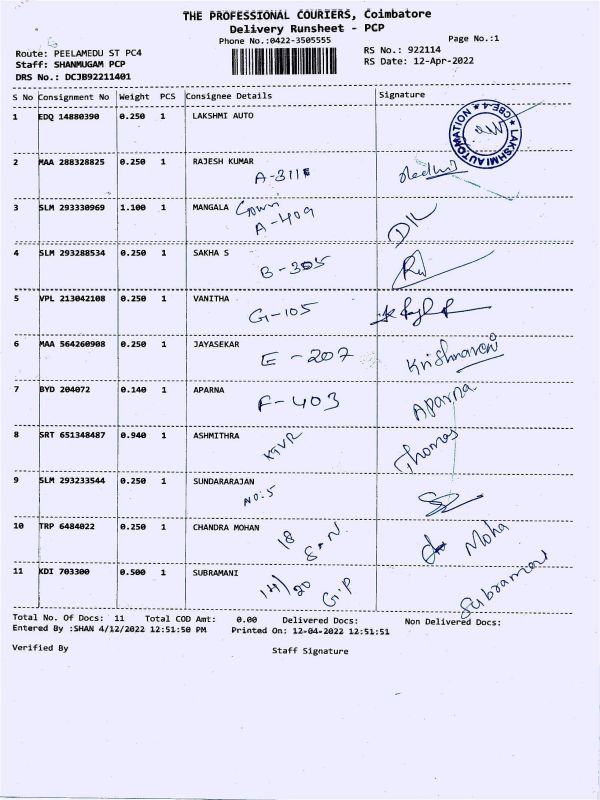 THE PROFESSIONAL COURIERS, Coimbatore
Delivery Runsheet - PCP
Phone No.:0422-3505555
Page No.:1
Route: PEELAMEDU ST PC4
RS No.: 922114
Staff: SHANMUGAM PCP
RS Date: 12-Apr-2022
DRS No.: DCJB92211401
S No Consignment No Weight PCS Consignee Details Signature
1 EDQ 14880390 0.250 1 LAKSHMI AUTO
LAKSHMI AUTOMATION ★ CBE-4 ★
2 MAA 288328825 0.250 1 RAJESH KUMAR
A-311
3 SLM 293330969 1.100 1 MANGALA
A-409
4 SLM 293288534 0.250 1 SAKHA S
B-305
5 VPL 213042108 0.250 1 VANITHA
G-105
6 MAA 564260908 0.250 1 JAYASEKAR
E - 207 Krishnaveni
7 BYD 204072 0.140 1 APARNA
F-403 Aparna
8 SRT 651348487 0.940 1 ASHMITHRA
KGVR Thomas
9 SLM 293233544 0.250 1 SUNDARARAJAN
NO:5
10 TRP 6484022 0.250 1 CHANDRA MOHAN
18 S.N. Moha
11 KDI 703300 0.500 1 SUBRAMANI
14/20 G.P Subramani
Total No. Of Docs: 11 Total COD Amt: 0.00 Delivered Docs: Non Delivered Docs:
Entered By :SHAN 4/12/2022 12:51:50 PM Printed On: 12-04-2022 12:51:51
Verified By Staff Signature